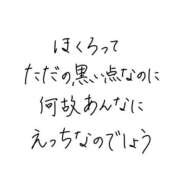 ほくろって
ただの,黒い点なのに
何故あんなに
えっちなのでしょう